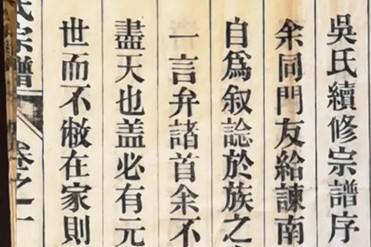 吳氏續修宗譜序
余同門友給諫南
自為叙諗於族之
一言弁諸首余不
盡天也盖必有元
世而不敝在家則
氏宗譜
卷之一